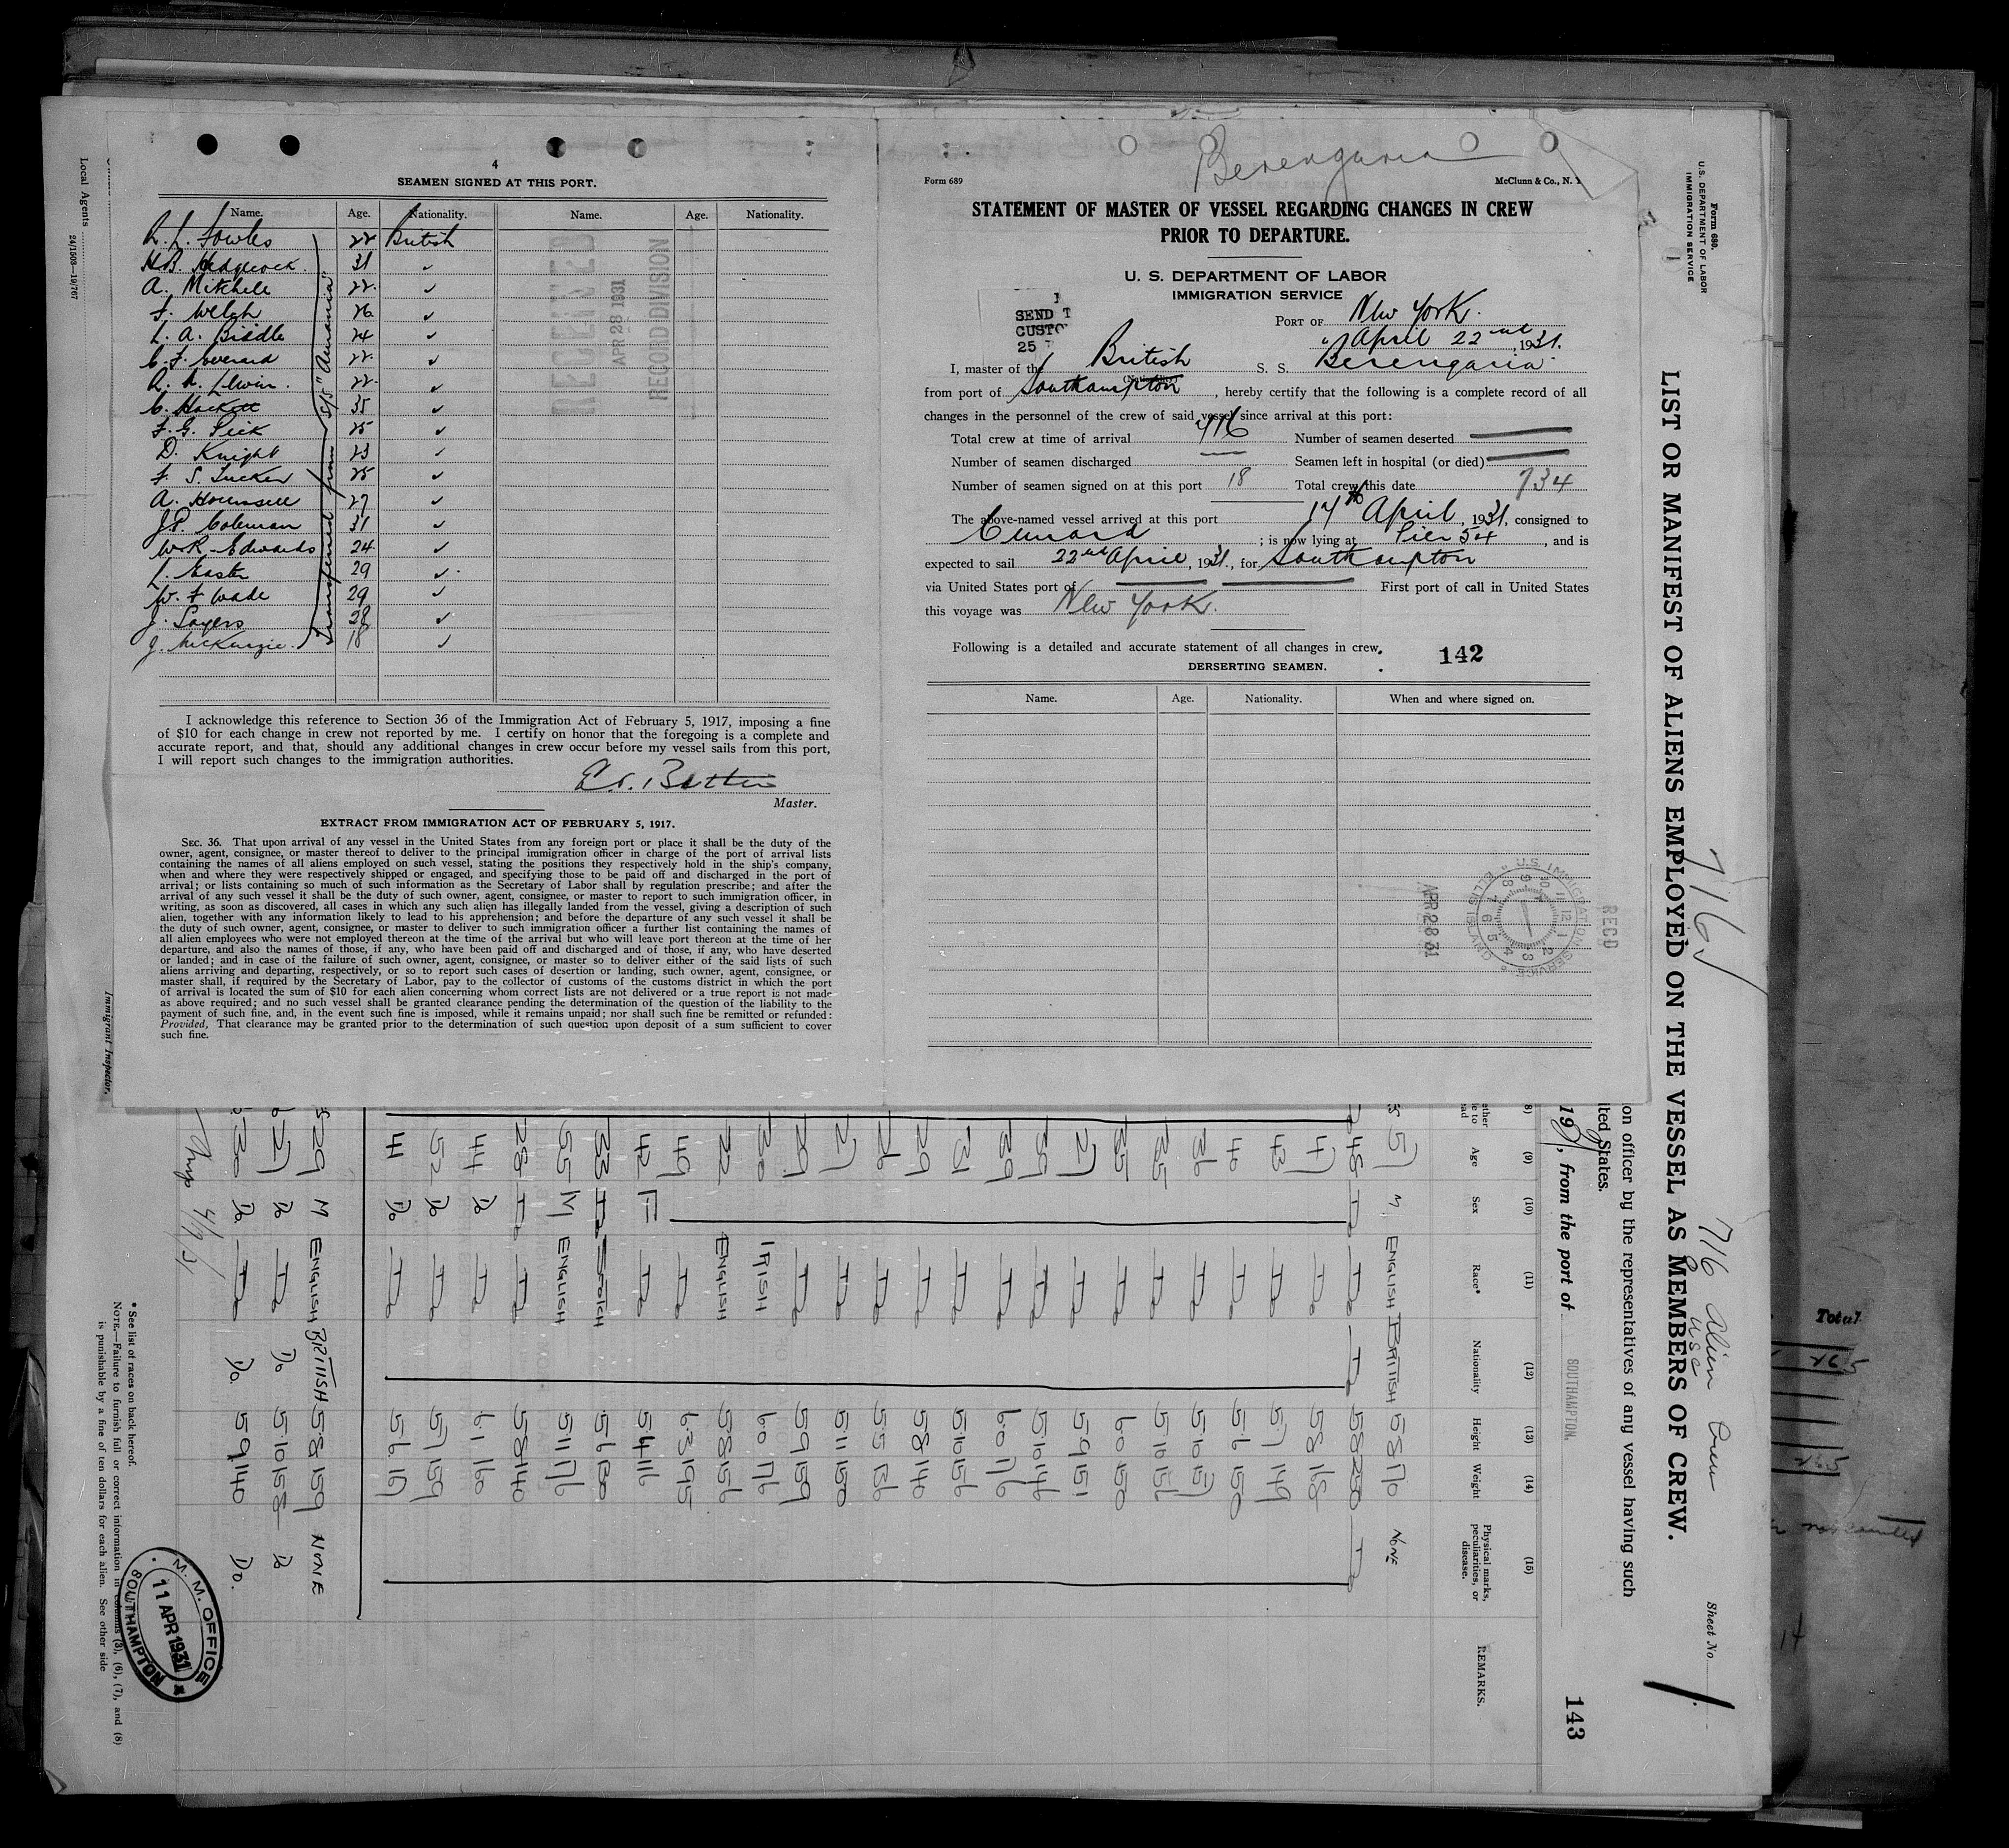 4
SEAMEN SIGNED AT THIS PORT.
Name. Age. Nationality. Name. Age. Nationality.
22 British
31 ✓
A. Mitchell 22 ✓
F. Welch 26 ✓
L. A. Biddle 24 ✓
C. F. Everard 22 ✓
22 ✓
C. Hackett 35 ✓
F. G. Pick 25 ✓
D. Knight 23 ✓
F. S. Tucker 25 ✓
A. Hounsell 27 ✓
J.P. Coleman 31 ✓
W.R. Edwards 24 ✓
L. Easter 29 ✓
W. F. Wade 29 ✓
J. Sayers 28 ✓
J. McKenzie 18 ✓
Transferred from S/S "Aurania"
RECEIVED
APR 28 1931
RECORD DIVISION
I acknowledge this reference to Section 36 of the Immigration Act of February 5, 1917, imposing a fine
of $10 for each change in crew not reported by me. I certify on honor that the foregoing is a complete and
accurate report, and that, should any additional changes in crew occur before my vessel sails from this port,
I will report such changes to the immigration authorities.
Master.
EXTRACT FROM IMMIGRATION ACT OF FEBRUARY 5, 1917.
SEC. 36. That upon arrival of any vessel in the United States from any foreign port or place it shall be the duty of the
owner, agent, consignee, or master thereof to deliver to the principal immigration officer in charge of the port of arrival lists
containing the names of all aliens employed on such vessel, stating the positions they respectively hold in the ship's company,
when and where they were respectively shipped or engaged, and specifying those to be paid off and discharged in the port of
arrival; or lists containing so much of such information as the Secretary of Labor shall by regulation prescribe; and after the
arrival of any such vessel it shall be the duty of such owner, agent, consignee, or master to report to such immigration officer, in
writing, as soon as discovered, all cases in which any such alien has illegally landed from the vessel, giving a description of such
alien, together with any information likely to lead to his apprehension; and before the departure of any such vessel it shall be
the duty of such owner, agent, consignee, or master to deliver to such immigration officer a further list containing the names of
all alien employees who were not employed thereon at the time of the arrival but who will leave port thereon at the time of her
departure, and also the names of those, if any, who have been paid off and discharged and of those, if any, who have deserted
or landed; and in case of the failure of such owner, agent, consignee, or master so to deliver either of the said lists of such
aliens arriving and departing, respectively, or so to report such cases of desertion or landing, such owner, agent, consignee, or
master shall, if required by the Secretary of Labor, pay to the collector of customs of the customs district in which the port
of arrival is located the sum of $10 for each alien concerning whom correct lists are not delivered or a true report is not made
as above required; and no such vessel shall be granted clearance pending the determination of the question of the liability to the
payment of such fine, and, in the event such fine is imposed, while it remains unpaid; nor shall such fine be remitted or refunded:
Provided, That clearance may be granted prior to the determination of such question upon deposit of a sum sufficient to cover
such fine.
Berengaria
Form 689
McClunn & Co., N. Y
STATEMENT OF MASTER OF VESSEL REGARDING CHANGES IN CREW
PRIOR TO DEPARTURE.
U. S. DEPARTMENT OF LABOR
IMMIGRATION SERVICE
SEND T
CUSTO
25
PORT OF New York.
April 22nd, 1931.
I, master of the British S. S. Berengaria
from port of Southampton, hereby certify that the following is a complete record of all
changes in the personnel of the crew of said vessel since arrival at this port:
Total crew at time of arrival 716 Number of seamen deserted
Number of seamen discharged Seamen left in hospital (or died)
Number of seamen signed on at this port 18 Total crew this date 734
The above-named vessel arrived at this port 17th April, 1931, consigned to
Cunard; is now lying at Pier 54, and is
expected to sail 22nd April, 1931., for Southampton
via United States port of First port of call in United States
this voyage was New York.
Following is a detailed and accurate statement of all changes in crew.
142
DERSERTING SEAMEN.
Name. Age. Nationality. When and where signed on.
RECD
U.S. IMMIGRATION SERVICE
ELLIS ISLAND
APR 28 31
Form 689.
U. S. DEPARTMENT OF LABOR
IMMIGRATION SERVICE
LIST OR MANIFEST OF ALIENS EMPLOYED ON THE VESSEL AS MEMBERS OF CREW.
716 ✓
716 Alien Crew
USC
Sheet No
1
on officer by the representatives of any vessel having such
ited States.
1931, from the port of SOUTHAMPTON.
143
(8) (9) (10) (11) (12) (13) (14) (15)
Age Sex Race* Nationality Height Weight Physical marks, peculiarities, or disease. REMARKS.
51 M ENGLISH BRITISH 58 170 NONE
48 Do Do Do 58 200 Do
47 Do 58 168
43 Do 57 149
40 Do 56 150
36 Do 510 157
35 Do 510 156
35 Do 60 150
27 Do 59 151
39 Do 510 146
39 Do 60 176
31 Do 510 156
29 Do 58 140
26 Do 55 136
27 Do 511 150
29 Do 59 159
30 IRISH 60 176
22 ENGLISH 58 156
49 Do 63 195
42 F Do 54 116
33 Do SCOTCH 56 130
55 M ENGLISH 511 176
28 Do Do 58 140
44 Do Do 61 160
52 Do Do 57 159
41 Do Do 56 167
29 M ENGLISH BRITISH 58 159 NONE
27 Do Do Do 510 158 Do
30 Do. Do Do. 59 140 Do.
* See list of races on back hereof.
NOTE.—Failure to furnish full or correct information in columns (3), (6), (7), and (8)
is punishable by a fine of ten dollars for each alien. See other side
M. M. OFFICE
11 APR 1931
SOUTHAMPTON
Local Agents
24/1503—19/767
Immigrant Inspector.
Total
265
265
14